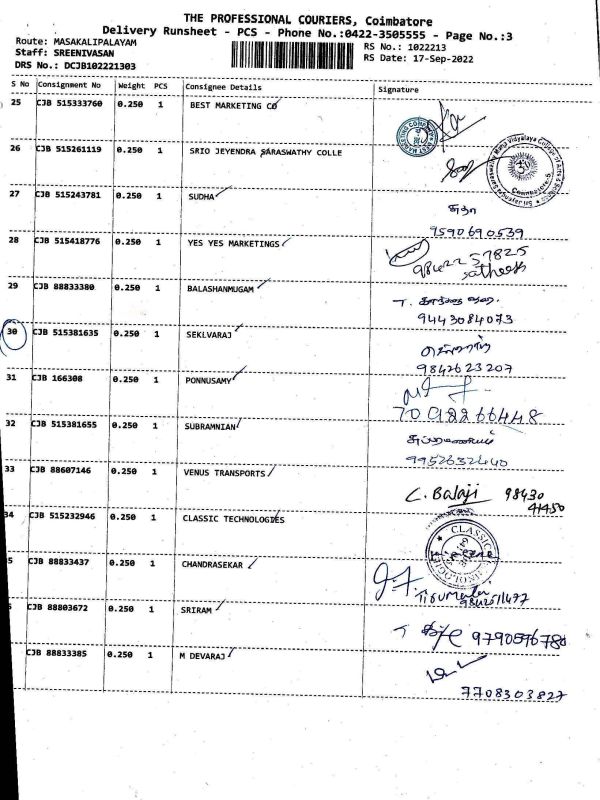 THE PROFESSIONAL COURIERS, Coimbatore
Delivery Runsheet - PCS - Phone No.:0422-3505555 - Page No.:3
Route: MASAKALIPALAYAM
RS No.: 1022213
Staff: SREENIVASAN
RS Date: 17-Sep-2022
DRS No.: DCJB102221303
S No Consignment No Weight PCS Consignee Details Signature
25 CJB 515333760 0.250 1 BEST MARKETING CO
26 CJB 515261119 0.250 1 SRIO JEYENDRA SARASWATHY COLLE
27 CJB 515243781 0.250 1 SUDHA
சுதா
9590690539
28 CJB 515418776 0.250 1 YES YES MARKETINGS
9842257825
Satheesh
29 CJB 88833380 0.250 1 BALASHANMUGAM
9443084073
30 CJB 515381635 0.250 1 SEKLVARAJ
9842623207
31 CJB 166308 0.250 1 PONNUSAMY
7092266448
32 CJB 515381655 0.250 1 SUBRAMNIAN
9952632440
33 CJB 88607146 0.250 1 VENUS TRANSPORTS
C. Balaji 98430
41450
34 CJB 515232946 0.250 1 CLASSIC TECHNOLOGIES
5 CJB 88833437 0.250 1 CHANDRASEKAR
CJB 88803672 0.250 1 SRIRAM
CJB 88833385 0.250 1 M DEVARAJ
7708303827